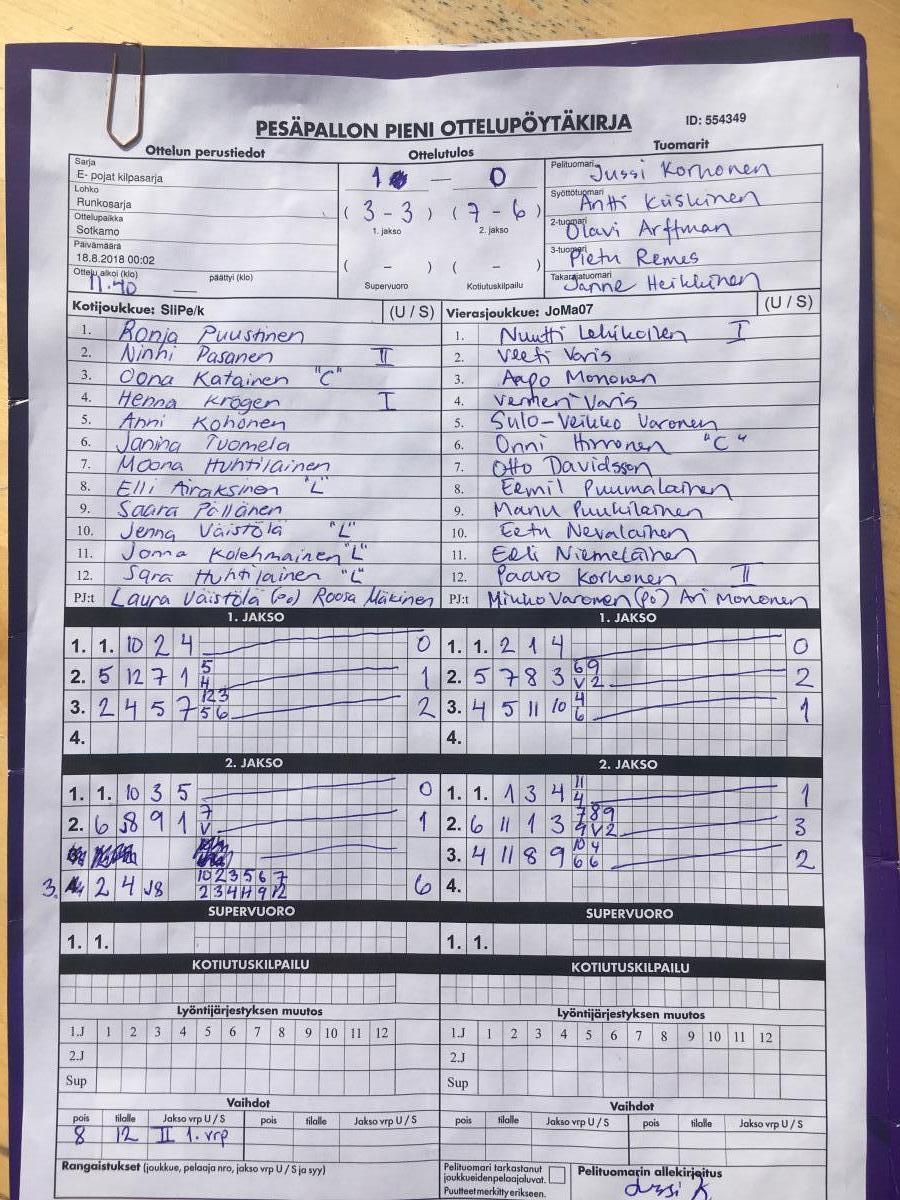 PESÄPALLON PIENI OTTELUPÖYTÄKIRJA ID: 554349
Ottelun perustiedot Ottelutulos Tuomarit
Sarja
E- pojat kilpasarja
Lohko
Runkosarja
Ottelupaikka
Sotkamo
Päivämäärä
18.8.2018 00:02
Ottelu alkoi (klo) päättyi (klo)
11.40
1 — 0
( 3 - 3 ) ( 7 - 6 )
1. jakso 2. jakso
( - ) ( - )
Supervuoro Kotiutuskilpailu
Pelituomari Jussi Korhonen
Syöttötuomari Antti Kiiskinen
2-tuomari Olavi Arffman
3-tuomari Pietu Remes
Takarajatuomari Janne Heikkinen
Kotijoukkue: SiiPe/k (U / S) Vierasjoukkue: JoMa07 (U / S)
1. Ronja Puustinen 1. Nuutti Lehikoinen I
2. Ninni Pasanen II 2. Veeti Varis
3. Oona Katainen "C" 3. Aapo Mononen
4. Henna Kröger I 4. Verneri Varis
5. Anni Kohonen 5. Sulo-Veikko Varonen
6. Janina Tuomela 6. Onni Hirvonen "C"
7. Moona Huhtilainen 7. Otto Davidsson
8. Elli Airaksinen "L" 8. Eemil Puumalainen
9. Saara Pöllänen 9. Manu Puukilainen
10. Jenna Väistölä "L" 10. Eetu Nevalainen
11. Jonna Kolehmainen "L" 11. Eeli Niemeläinen
12. Sara Huhtilainen "L" 12. Paavo Korhonen II
PJ:t Laura Väistölä (po) Roosa Mäkinen PJ:t Minho Varonen (po) Ari Mononen
1. JAKSO 1. JAKSO
1. 1. 10 2 4 0 1. 1. 2 1 4 0
2. 5 12 7 1 5 4 1 2. 5 7 8 3 6 9 V 2 2
3. 2 4 5 7 12 3 5 6 2 3. 4 5 11 10 4 6 1
4. 4.
2. JAKSO 2. JAKSO
1. 1. 10 3 5 0 1. 1. 1 3 4 11 4 1
2. 6 J8 9 1 7 V 1 2. 6 11 1 3 7 8 9 9 V 2 3
3. 4 11 8 9 10 4 6 6 2
3. 2 4 J8 10 2 3 5 6 7 2 3 4 11 9 12 6 4.
SUPERVUORO SUPERVUORO
1. 1. 1. 1.
KOTIUTUSKILPAILU KOTIUTUSKILPAILU
Lyöntijärjestyksen muutos Lyöntijärjestyksen muutos
1.J 1 2 3 4 5 6 7 8 9 10 11 12 1.J 1 2 3 4 5 6 7 8 9 10 11 12
2.J 2.J
Sup Sup
Vaihdot Vaihdot
pois tilalle Jakso vrp U / S pois tilalle Jakso vrp U / S pois tilalle Jakso vrp U / S pois tilalle Jakso vrp U / S
8 12 II 1. vrp
Rangaistukset (joukkue, pelaaja nro, jakso vrp U / S ja syy)
Pelituomari tarkastanut
joukkueiden pelaajaluvat.
Puutteet merkitty erikseen.
Pelituomarin allekirjoitus
Jussi K